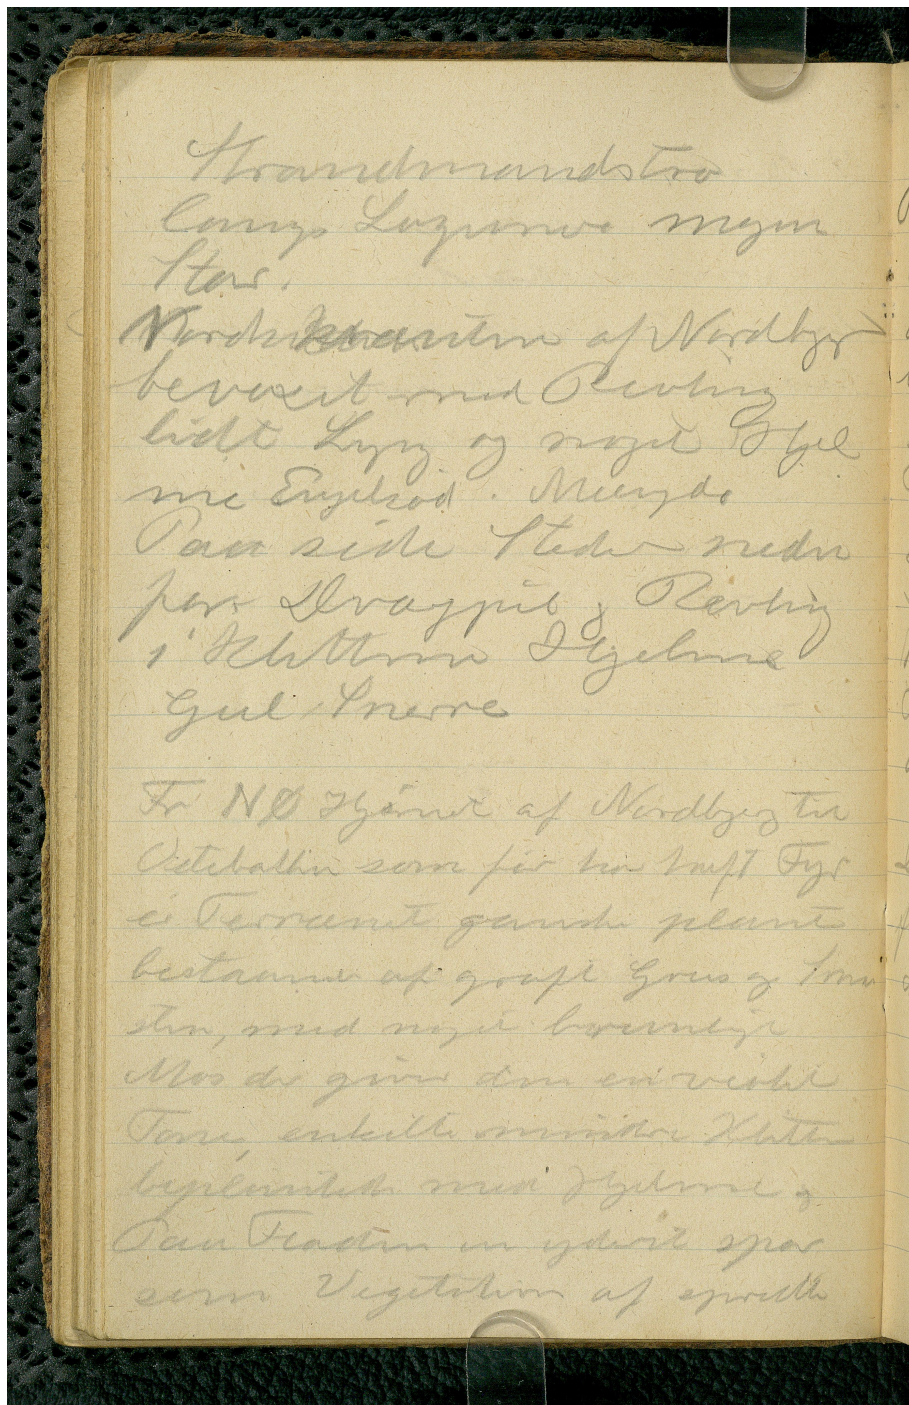 Strandmandstro
langs Lagunen megen
Star.
Nordskranten af Nordbjerg
bevoxet med Revling
lidt Lyng og noget Hjel
me Engelsød. Mængde
Paa side Steder neden
for Dværgpil & Revling
i Klitterne Hjelme
Gul Snerre
Fr NØ Hjørnet af Nordbjerg til
som før har haft Fyr
er Terrænet ganske plant
bestaaende af groft Grus og Smaa
sten, med noget brunligt
Mos der giver den en violet
Tone, enkelte mindre Klitter
beplantede med Hjelme &
Paa Fladen en yderst spar
som Vegetation af spredte